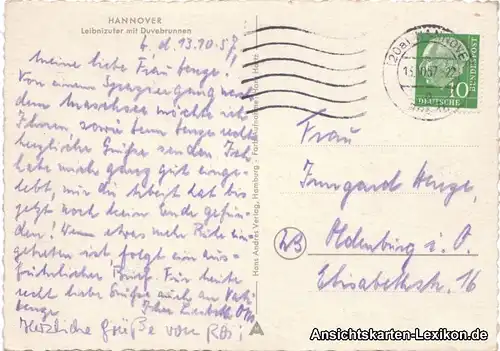 HANNOVER
Leibnizufer mit Duvebrunnen
d. 13.10.57
Meine liebe Frau Henge!
Von einem Spaziergang nach
dem Maschsee möchte ich
Ihnen, sowie dem
Grüße senden. Ich
habe mich ganz gut einge-
lebt, nur die Arbeit hat bis
jetzt noch kein Ende gefun-
den! Wenn etwas mehr Ruhe ein-
getreten ist, folgt ein aus-
führlicher Brief. Für heute
recht liebe Grüße auch an
Ihre
Herzliche Grüße von
Hans Andres Verlag, Hamburg - Farbaufnahme Hans Hartz
HANNOVER
10
BUNDESPOST
DEUTSCHE
Frau
Irmgard Henge,
Oldenburg i. O.
Elisabethstr. 16
Ansichtskarten-Lexikon.de